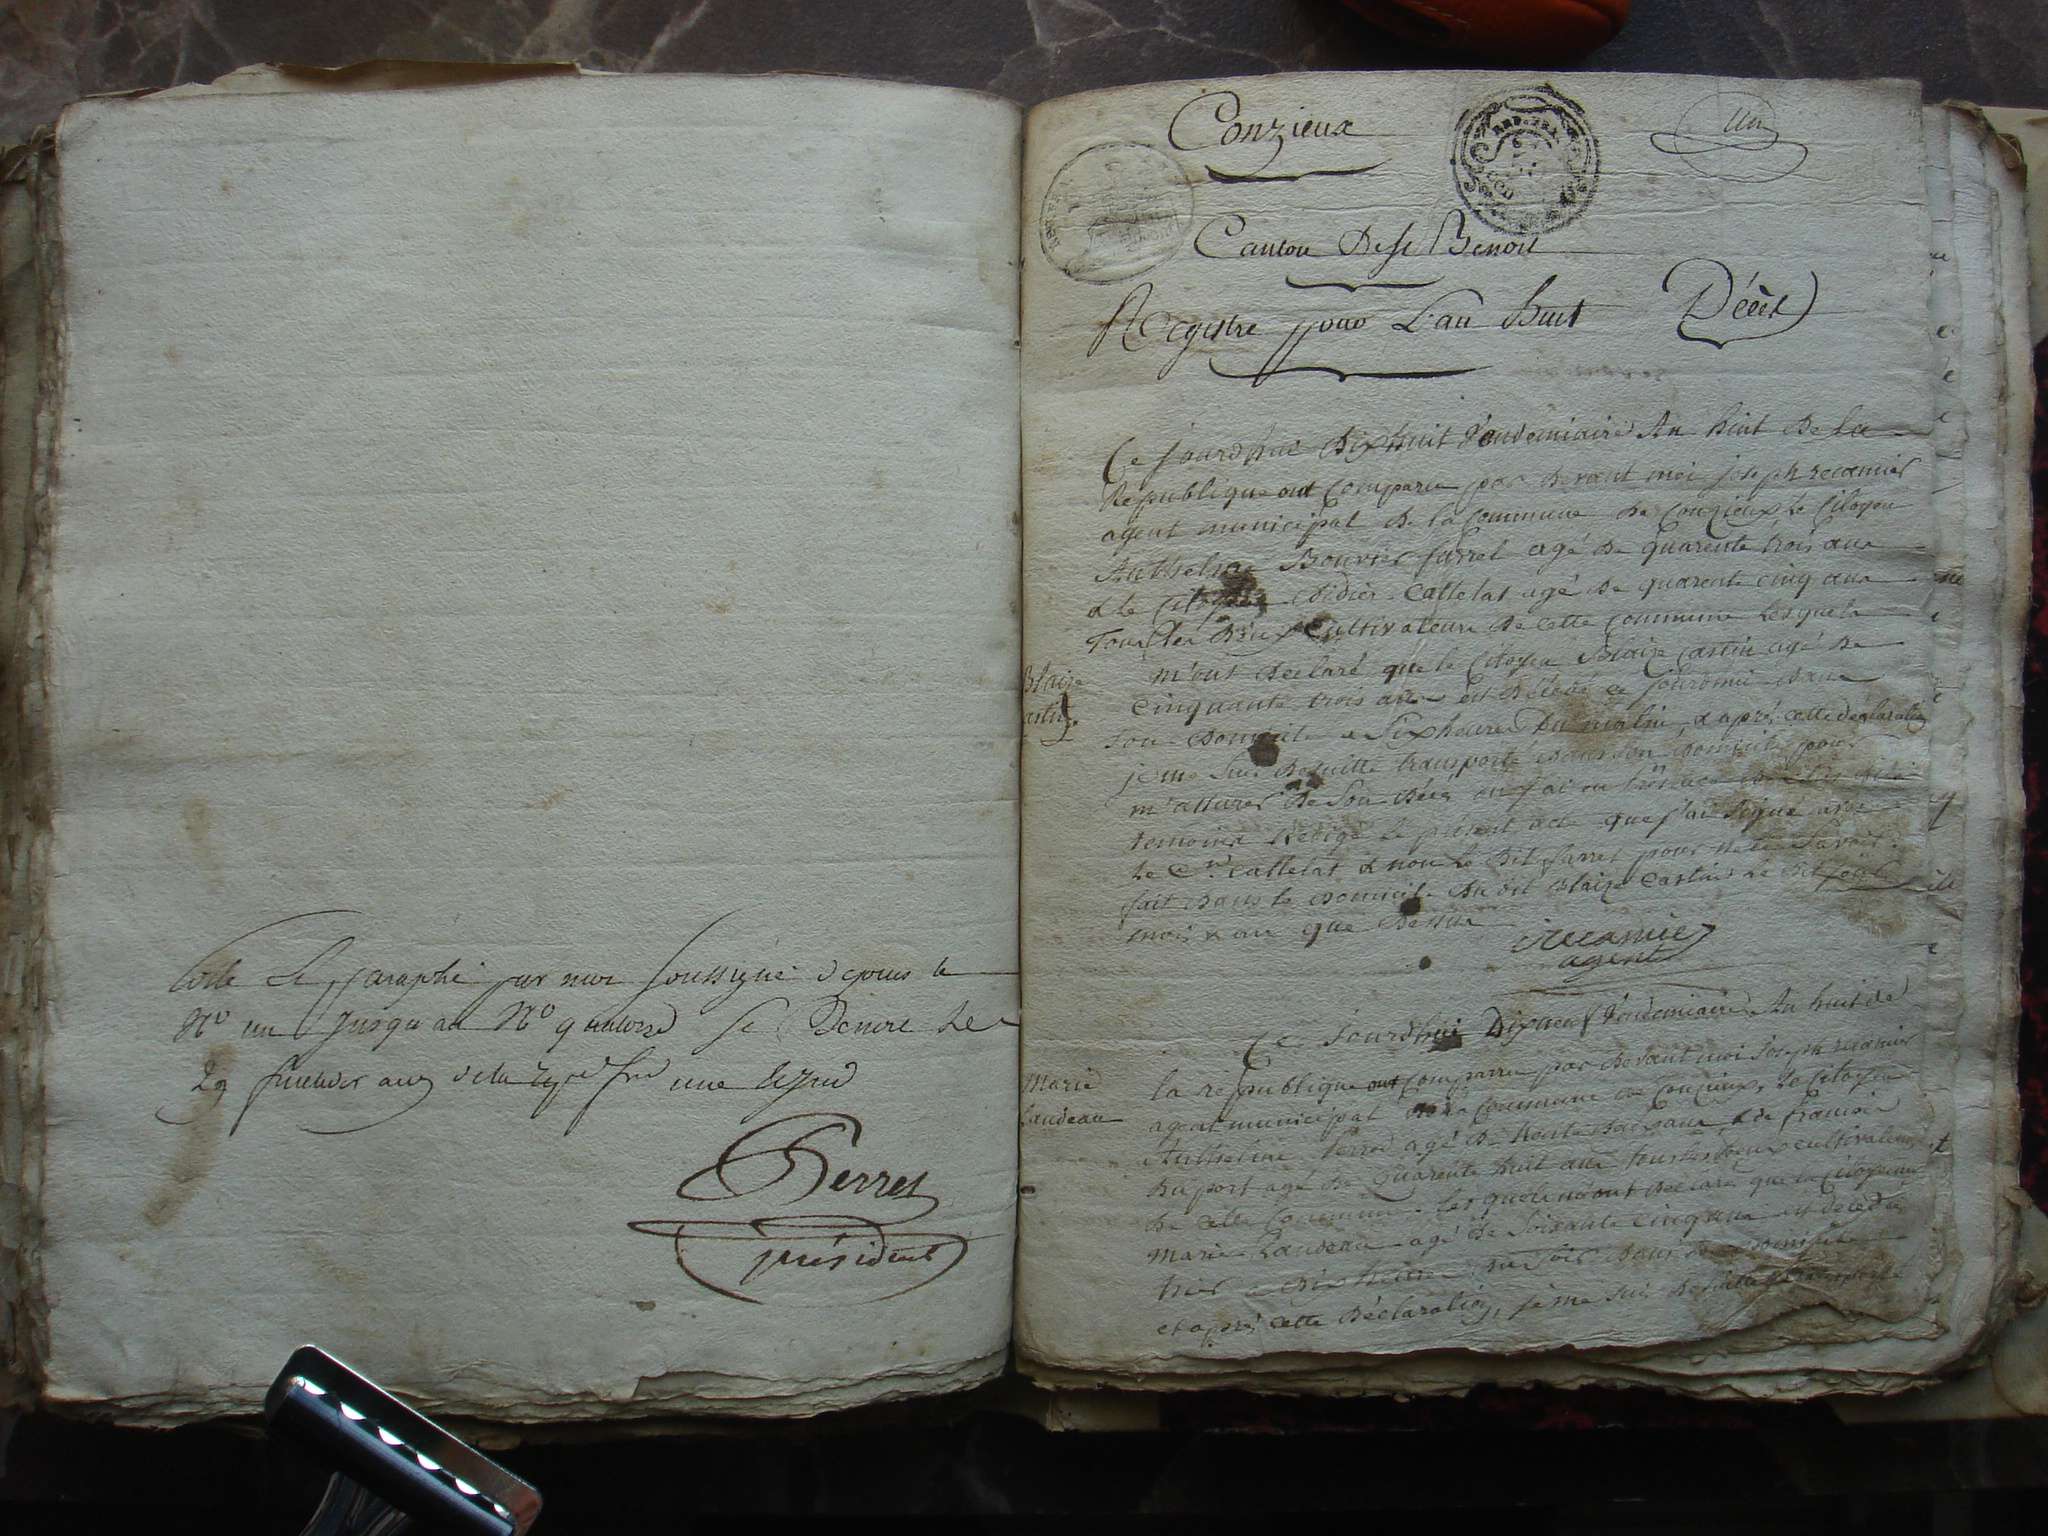 Cotté et paraphé par moi soussigné depuis le
N° un jusqu'au N° quatorze le Dernier Le
29 fructidor an 7 de la Rque fse une
Perret
président
Conzieux
un
REP. FRA.
Canton De St Benoit
Registre pour L'an huit Décès
Ce jourdhui Dixhuit Vendemiaire An huit De la
Republique ont Comparu par Devant moi joseph recamier
agent municipal De la Commune de Conzieux Le Citoyen
Anthelme Bouvier farret agé De quarente trois ans
& le Citoyen Didier Cattelat agé De quarente cinq ans
Tous les Deux Cultivateurs De cette Commune Lesquels
m'ont Declaré que le Citoyen Blaize Castin agé De
Cinquante trois ans est Décédé ce jourdhui Dans
son Domicile a Six heures Du matin, & après cette déclaration
je me suis De suitte transporté Dans son Domicile pour
m'assurer De son Décès où j'ai en présence Des dits
temoins Rédigé Le présent acte que j'ai Signé avec
Le Cn. Cattelat & non Le Dit farret pour ne le Savoir.
fait Dans le Domicile Du dit Blaize Castin Le Dit jour
mois & an que Dessus
Blaize
Castin
Recamier
agent
Ce Jourdhui Dixneuf Vendemiaire An huit de
la republique ont comparru par Devant moi Joseph recamier
agent municipal De la Commune de Conzieux, Le Citoyen
Anthelme Perrod agé De trente Deux ans & de francois
Duport agé De Quarente huit ans tous les Deux cultivateurs
De cette Commune. Les quels m'ont Declaré que la Citoyenne
Marie Landeau agé De Soixante cinq ans est décédée
hier a Dix heures Du Soir Dans son Domicile
et après cette Déclaration, je me suis De suitte transporté
Marie
Landeau